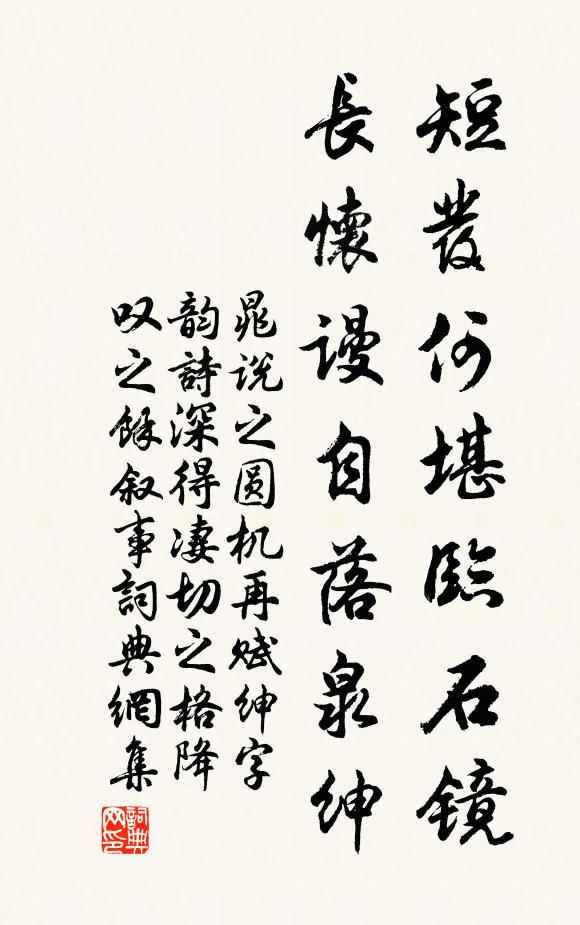 短發何堪臨石镜
長懷谩自落泉紳
晁说之圆机再赋紳字
韵詩深得凄切之格降
叹之餘叙事詞典網集
詞典网印